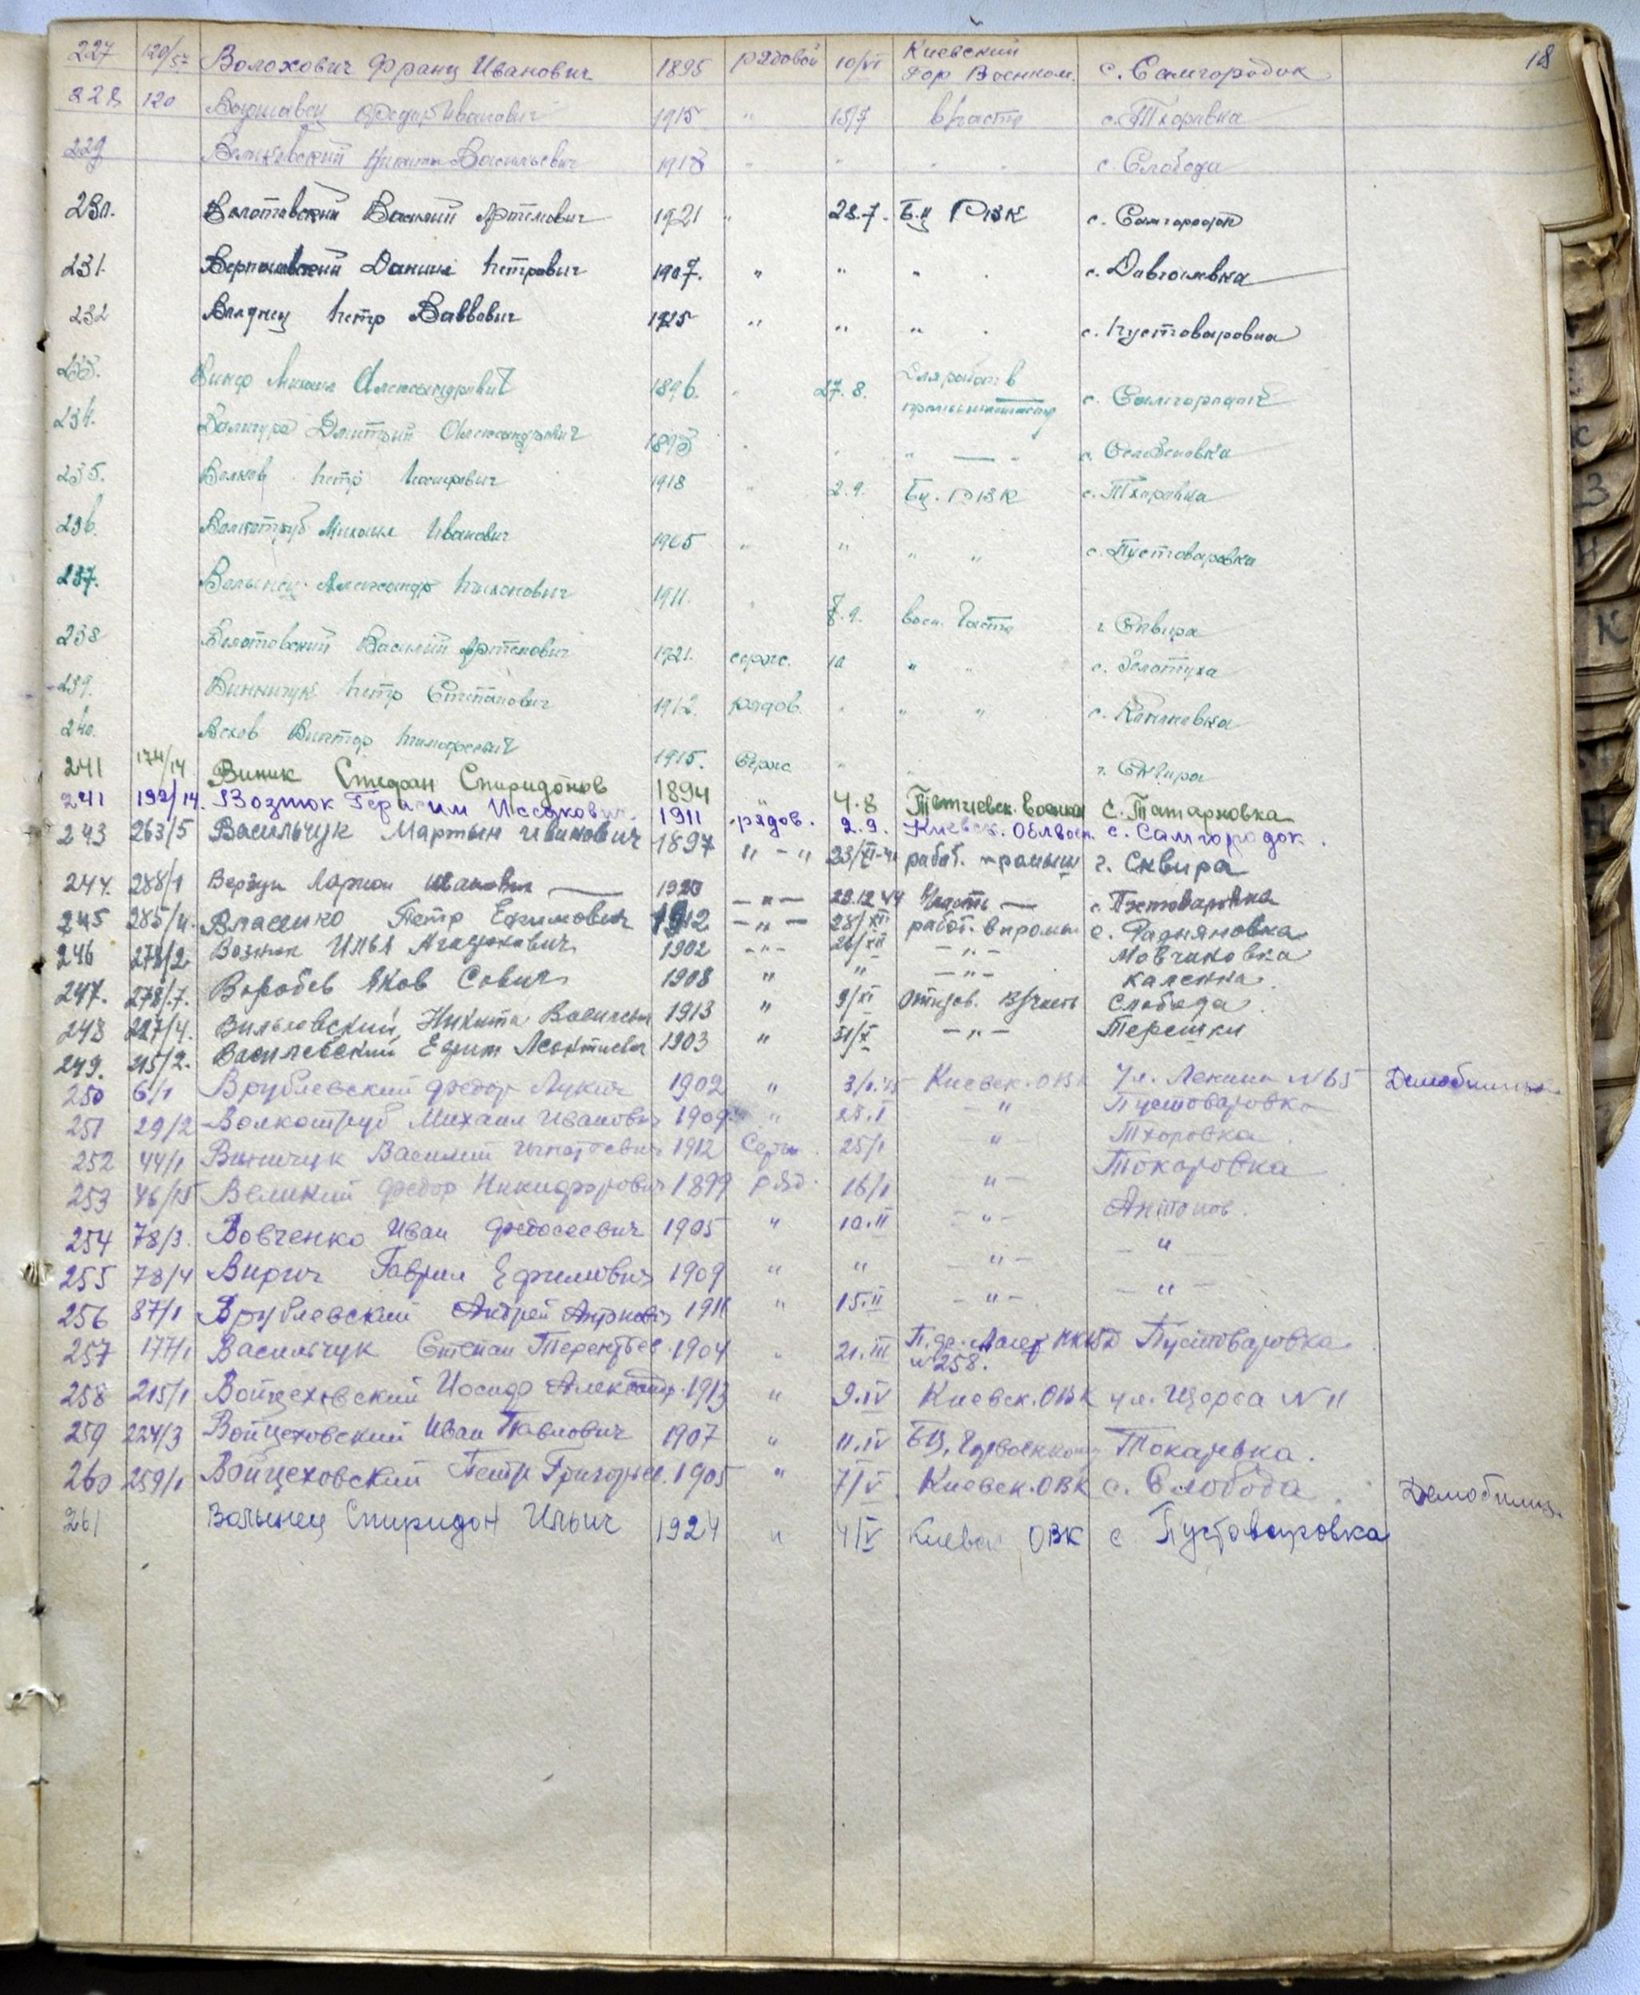 18
227 120/57 Волохович Франц Иванович 1895 рядовой 10/VI Киевский Гор Военком. с. Самгородок
228 120 Федор Иванович 1915 " 15/7 в/часть с. Тхоровка
229 Никита Васильевич 1913 " " " " с. Слобода
230. Золотовский Василий Артемович 1921 " 28.7. Б.Ц РВК с. Самгородок
231. Данил Петрович 1907. " " " . с. Довгалевка
232 Петр Саввович 1925 " " " . с. Пустоваровка
233. Михаил Александрович 1896. " 27.8. Для работ в промышленность с. Самгородок
234. Дмитрий Александрович 1893 " . " — " с.
235. Волков Петр 1918 " 2.9. Бц. РВК с. Тхоровка
236. Волкотруб Михаил Иванович 1905 " " " " с. Пустоваровка
237. Волынец Александр 1911. " 7.9. воен. часть г. Сквира
238 Василий Артемович 1921. сержс. 10 " " с. Золотуха
239. Винничук Петр Степанович 1912. рядов. . " " с.
240. Виктор Тимофеевич 1915. Сержс " " г. Сквира
241 174/14 Виник Стефан Спиридонов 1894 " 4.8 Тетиевск. военком С. Татарновка
241 192/14. Возтюк Герасим 1911 рядов. 2.9. Киевск. Облвоен. с. Самгородок.
243 263/5 Васильчук Мартын Иванович 1897 " – " 23/XI-44 работ. промыш г. Сквира
244. 288/1 Верзун Ларион Иванович — 1920 – " – 22.12.44 В/часть — с. Пустоваровка
245 285/4. Власенко Петр Ефимович 1912 – " – 28/XII работ. в промыш с.
246 278/2 Возтюк Илья 1902 – " – 26/XII – " – Мовчановка
247. 278/7. Воробьев Яков Савич 1908 " " – " – Каленна.
248 227/4. Никита Васильевич 1913 " 9/XI Откров. В/часть Слобода.
249. 215/2. Василевский Ефим Леонтиевич 1903 " 31/X – " – Терешки
250 6/1 Врублевский Федор Лукич 1902 " 3/I.45 Киевск. ОВК Ул. Ленина №65 Демобилиз
251 29/2 Волкотруб Михаил Иванович 1909 " 25.I – " Пустоваровка
252 44/1 Виничук Василий Игнатович 1912 Серж. 25/I " – Тхоровка
253 46/15 Великий Федор Никифорович 1899 ряд. 16/I " – Токаровка
254 78/3. Вовченко Иван Федосеевич 1905 " 10.II – " – Антонов.
255 78/4 Вирич Гаврил Ефимович 1909 " " – " – – " –
256 87/1 Врублевский Андрей Антонович 1911 " 15.II – " – – " –
257 177/1 Васильчук Степан Терентьев. 1904 " 21.III П.др. Лагер НКВД №258. Пустоваровка
258 215/1 Войцеховский Иосиф Александр. 1913 " 9.IV Киевск. ОВК ул. Щорса №11
259 224/3 Войцеховский Иван Павлович 1907 " 11.IV БЦ. Горвоенкому Токаревка.
260 259/1 Войцеховский Петр Григорьев. 1905 " 7/V Киевск. ОВК с. Слобода. Демобилиз.
261 Волынец Спиридон Ильич 1924 " 4/V Киевск ОВК с Пустоваровка